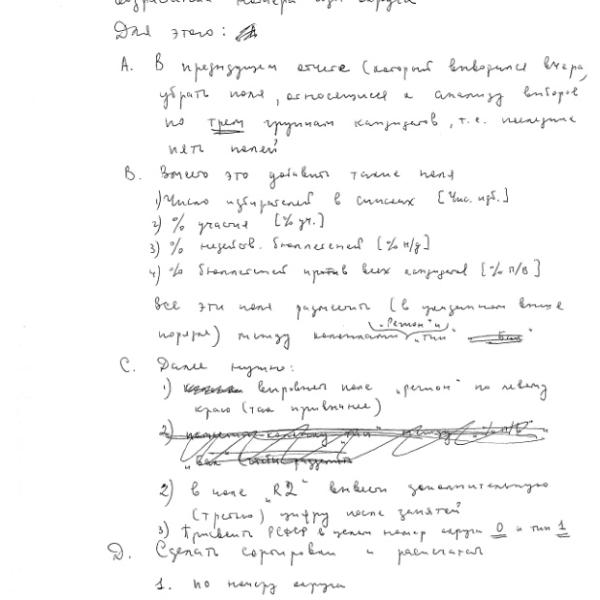 номера при округа
Для этого:
A. В предыдущем отчете (который выводился вчера,
убрать поля, относящиеся к анализу выборов
по трем группам кандидатов, т.е. последние
пять полей
B. Вместо это добавить такие поля
1) Число избирателей в списках [Чис. изб.]
2) % участия [% уч.]
3) % недейств. бюллетеней [% н/д]
4) % бюллетеней против всех кандидатов [% п/в]
Все эти поля разместить (в указанном выше
порядке) между колонками „Регион" и „тип"
C. Далее нужно:
1) выровнять поле „регион" по левому
краю (так привычнее)
2) в поле „R2" вывести дополнительную
(третью) цифру после запятой
3) Присвоить РСФСР в целом номер округа 0 и тип 1
D. Сделать сортировки и распечатать
1. по номеру округа